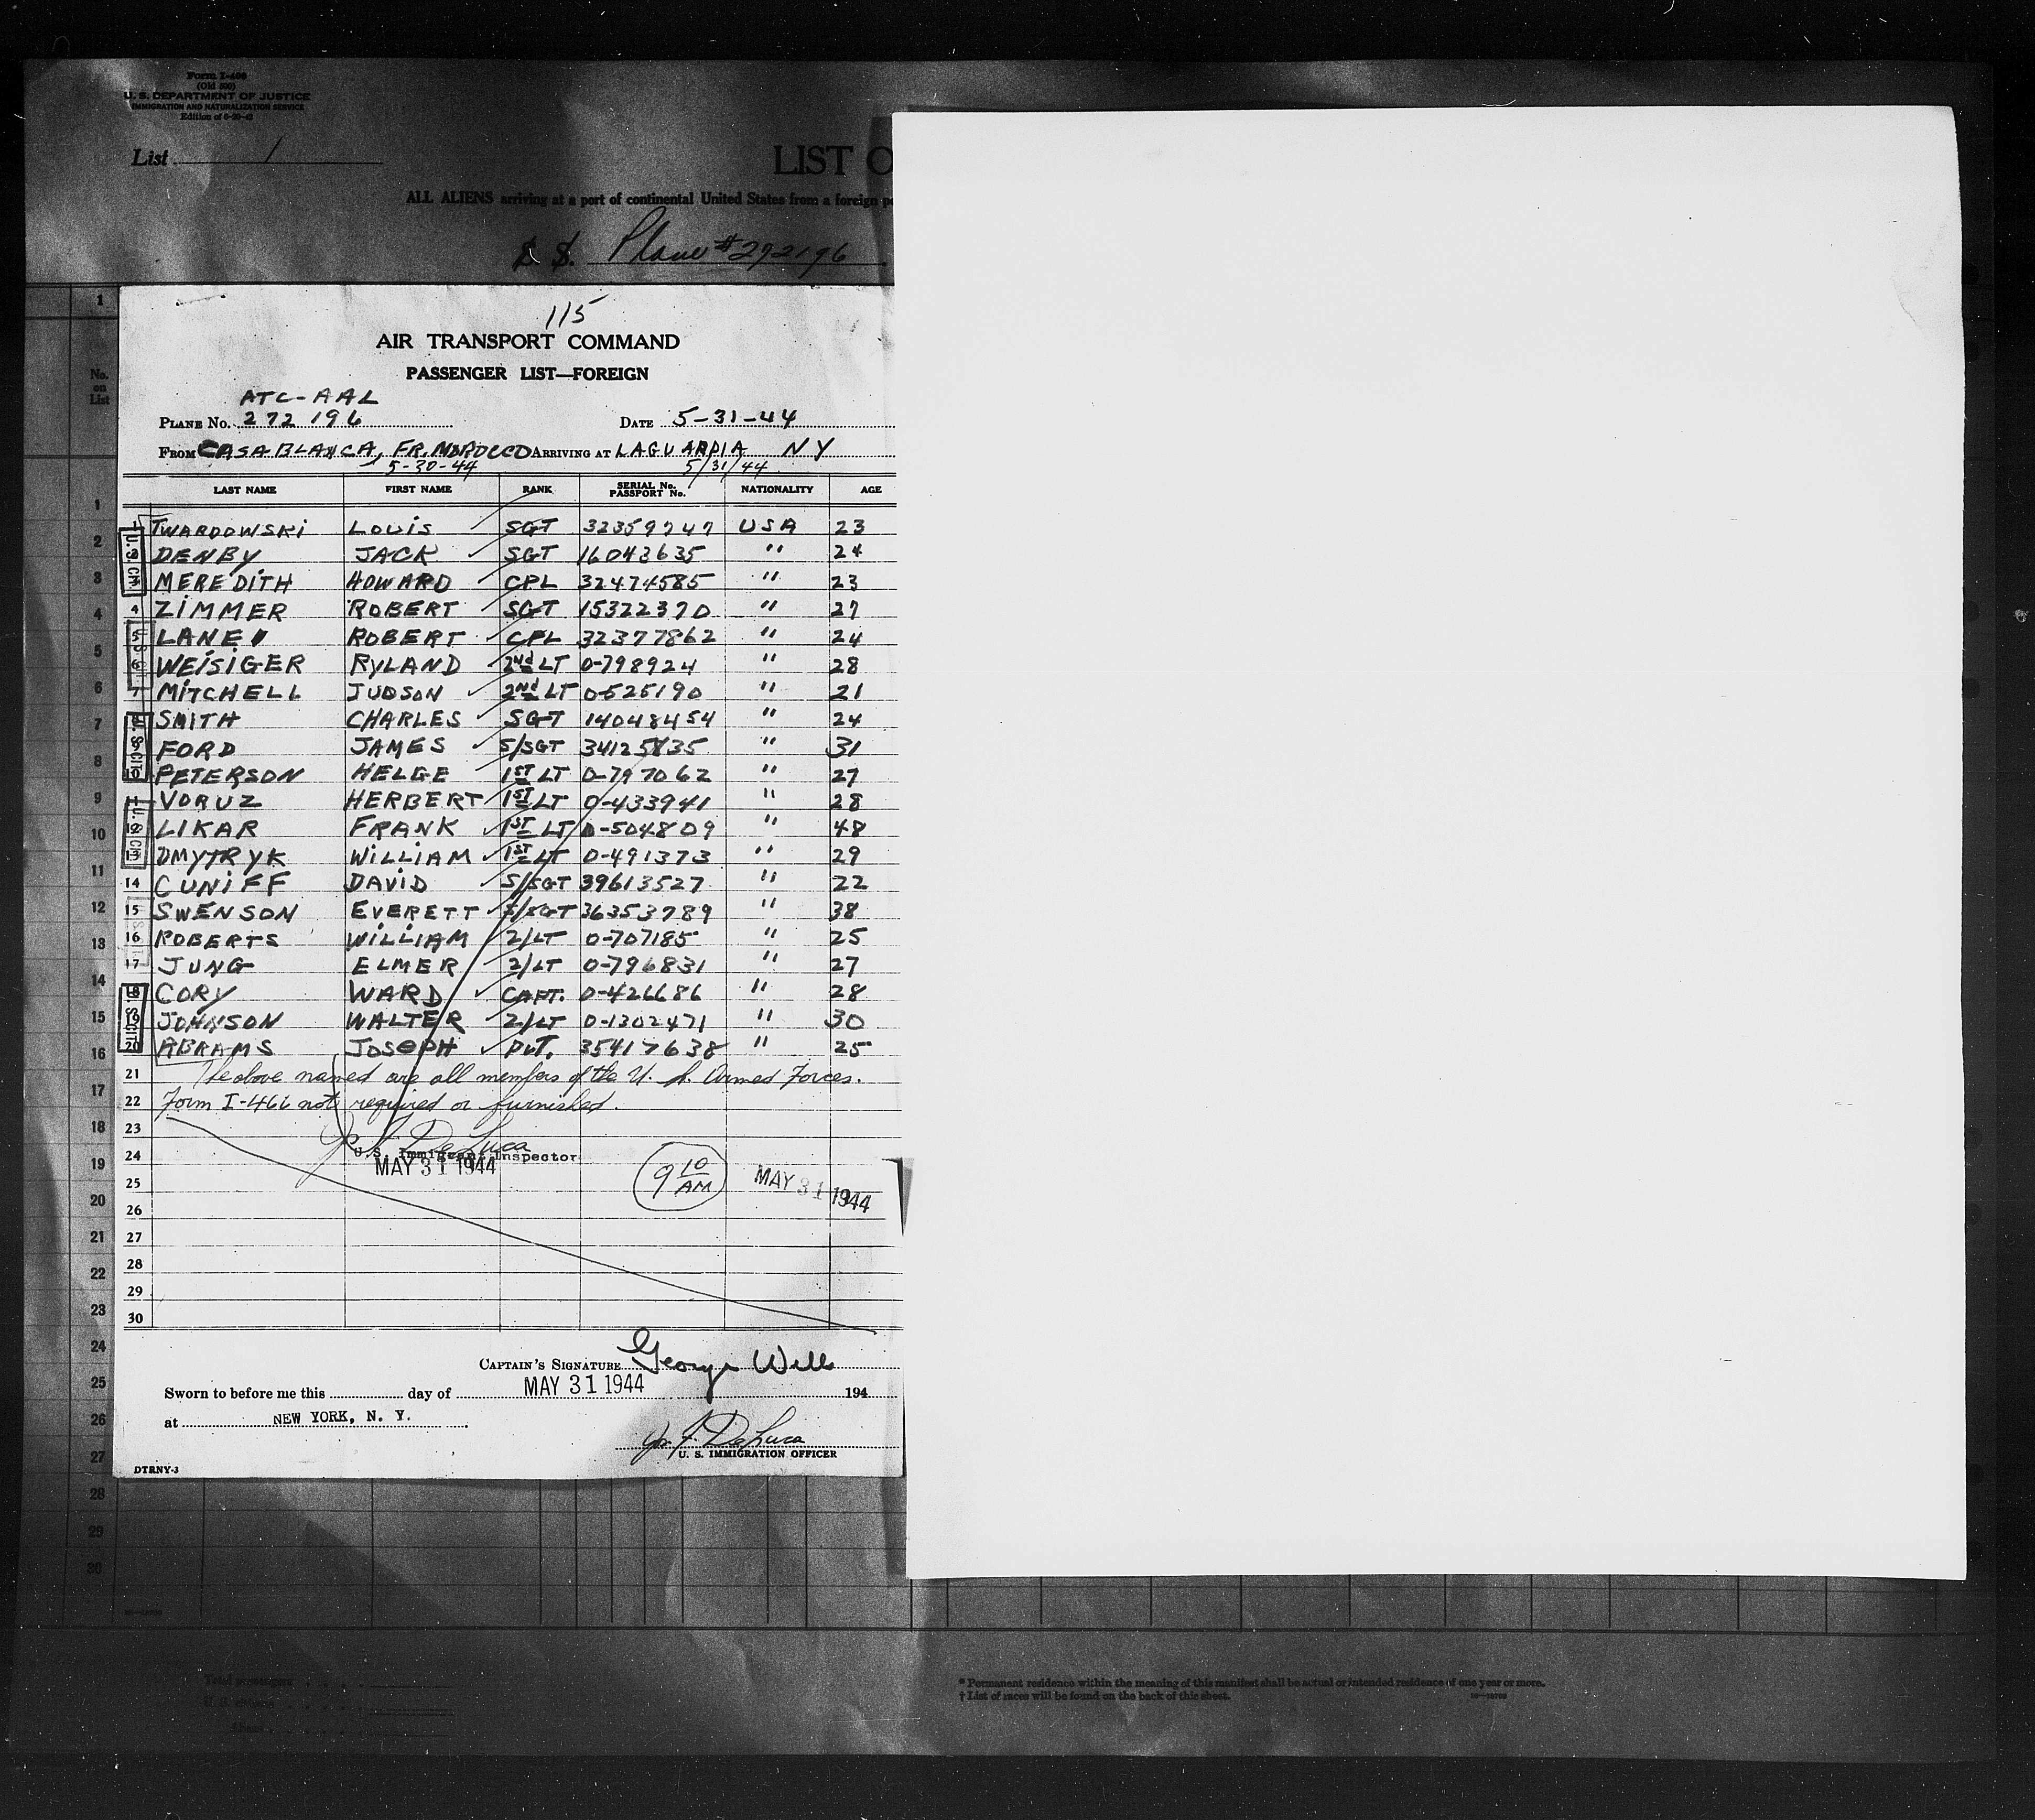 Form I-466
(Old 500)
U. S. DEPARTMENT OF JUSTICE
IMMIGRATION AND NATURALIZATION SERVICE
Edition of
List 1
LIST O
ALL ALIENS arriving at a port of continental United States from a foreign
S. S. Plane #272196
115
AIR TRANSPORT COMMAND
PASSENGER LIST—FOREIGN
ATC-AAL
PLANE NO. 272 196 DATE 5-31-44
FROM CASABLANCA, FR. MOROCCO ARRIVING AT LAGUARDIA NY
5-30-44 5/31/44
No. on List
LAST NAME FIRST NAME RANK SERIAL No. PASSPORT No. NATIONALITY AGE
1 TWARDOWSKI LOUIS SGT 32359747 USA 23
2 DENBY JACK SGT 16043635 " 24
3 MEREDITH HOWARD CPL 32474585 " 23
4 ZIMMER ROBERT SGT 15322370 " 27
5 LANE ROBERT CPL 32377862 " 24
6 WEISIGER RYLAND 2nd LT 0-798924 " 28
7 MITCHELL JUDSON 2nd LT 0-525190 " 21
8 SMITH CHARLES SGT 14048454 " 24
9 FORD JAMES S/SGT 34125835 " 31
10 PETERSON HELGE 1ST LT 0-797062 " 27
11 VORUZ HERBERT 1ST LT 0-433941 " 28
12 LIKAR FRANK 1ST LT 0-504809 " 48
13 DMYTRYK WILLIAM 1ST LT 0-491373 " 29
14 CUNIFF DAVID S/SGT 39613527 " 22
15 SWENSON EVERETT S/SGT 36353789 " 38
16 ROBERTS WILLIAM 2/LT 0-707185 " 25
17 JUNG ELMER 2/LT 0-796831 " 27
18 CORY WARD CAPT. 0-426686 " 28
19 JOHNSON WALTER 2/LT 0-1302471 " 30
20 ABRAMS JOSEPH PVT. 35417638 " 25
21 The above named are all members of the U. S. Armed Forces.
22 Form I-466 not required or furnished.
23 DeLuca
24 U.S. Immigrant Inspector
MAY 31 1944
9 10 AM
MAY 31 1944
25
26
27
28
29
30
CAPTAIN'S SIGNATURE George Wells
Sworn to before me this day of MAY 31 1944 194
at NEW YORK, N. Y.
J. DeLuca
U. S. IMMIGRATION OFFICER
DTRNY-3
Total passengers
U. S. citizens
Aliens
* Permanent residence within the meaning of this manifest shall be actual or intended residence of one year or more.
† List of races will be found on the back of this sheet.